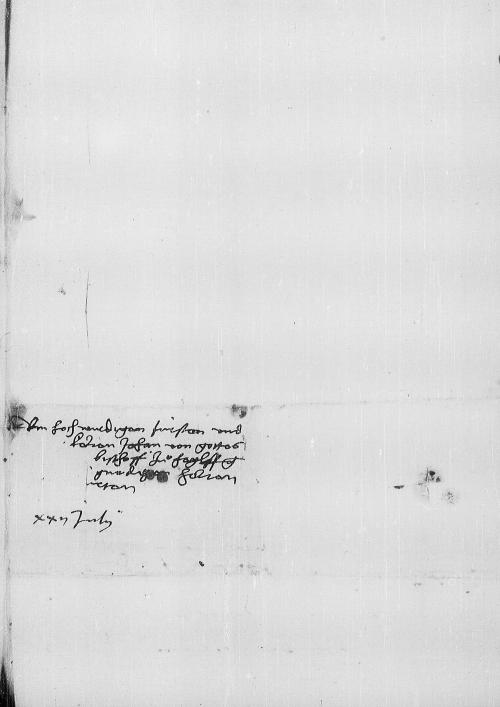 Dem hochwirdigen fürsten und
herren Johan von gottes
bischoff zu
gnedigen herren
xxii July